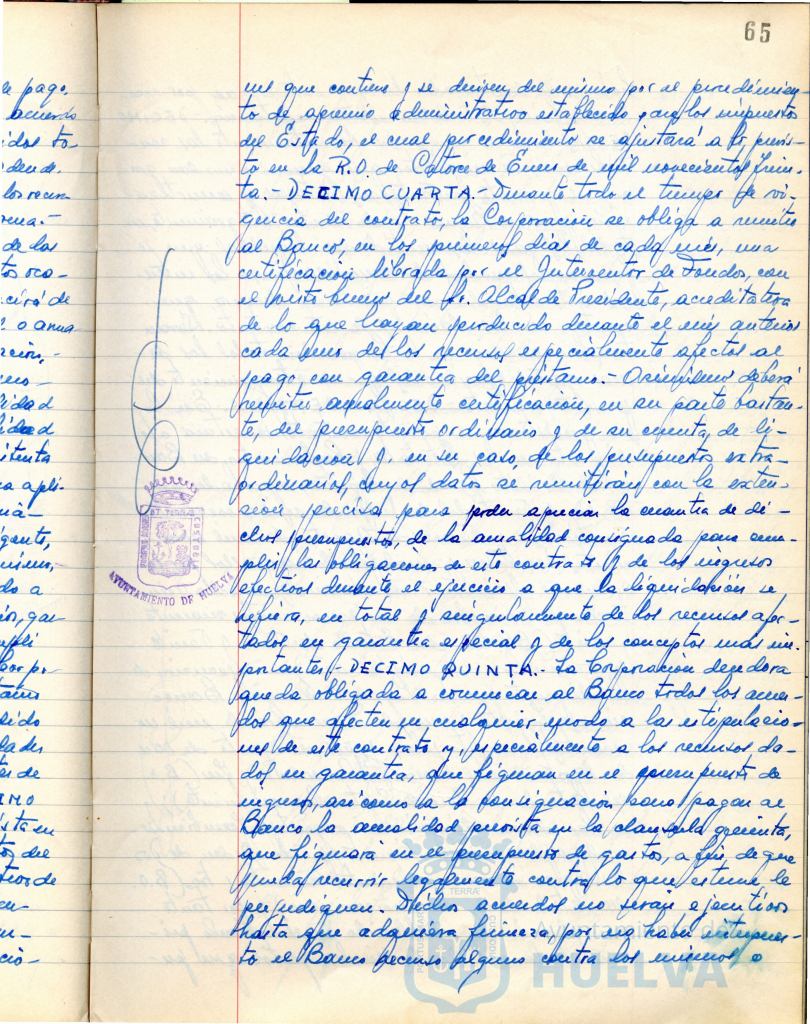 65
nes que contiene y se deriven del mismo por el procedimien-
to de apremio administrativo establecido para los impuestos
del Estado, el cual procedimiento se ajustará a lo previs-
to en la R.O. de Catorce de Enero de mil novecientos trein-
ta.- DECIMO CUARTA.- Durante todo el tiempo de vi-
gencia del contrato, la Corporación se obliga a remitir
al Banco, en los primeros días de cada mes, una
certificación librada por el Interventor de Fondos, con
el visto bueno del Sr. Alcalde Presidente, acreditativa
de lo que hayan producido durante el mes anterior
cada uno de los recursos especialmente afectos al
pago, con garantía del préstamo.- Asimismo deberá
remitir anualmente certificación, en su parte bastan-
te, del presupuesto ordinario y de su cuenta de li-
quidación y, en su caso, de los presupuestos extra-
ordinarios, cuyos datos se remitirán con la exten-
sión precisa para poder apreciar la cuantía de di-
chos presupuestos, de la anualidad consignada para cum-
plir las obligaciones de este contrato y de los ingresos
efectivos durante el ejercicio a que la liquidación se
refiera, en total y singularmente de los recursos afec-
tados en garantía especial y de los conceptos mas im-
portantes.- DECIMO QUINTA.- La Corporación deudora
queda obligada a comunicar al Banco todos los acuer-
dos que afecten en cualquier modo a las estipulacio-
nes de este contrato y, especialmente a los recursos da-
dos en garantía, que figuran en el presupuesto de
ingresos, así como a la consignación para pagar al
Banco la anualidad prevista en la clausula
que figurará en el presupuesto de gastos, a fin de que
pueda recurrir legalmente contra lo que estime le
perjudiquen. Dichos acuerdos no serán ejecutivos
hasta que adquiera firmeza, por no haber interpues-
to el Banco recurso alguno contra los mismos o
AYUNTAMIENTO DE HUELVA
PORTUS MARIS ET TERRAE CUSTODIA
Ayuntamiento de
HUELVA